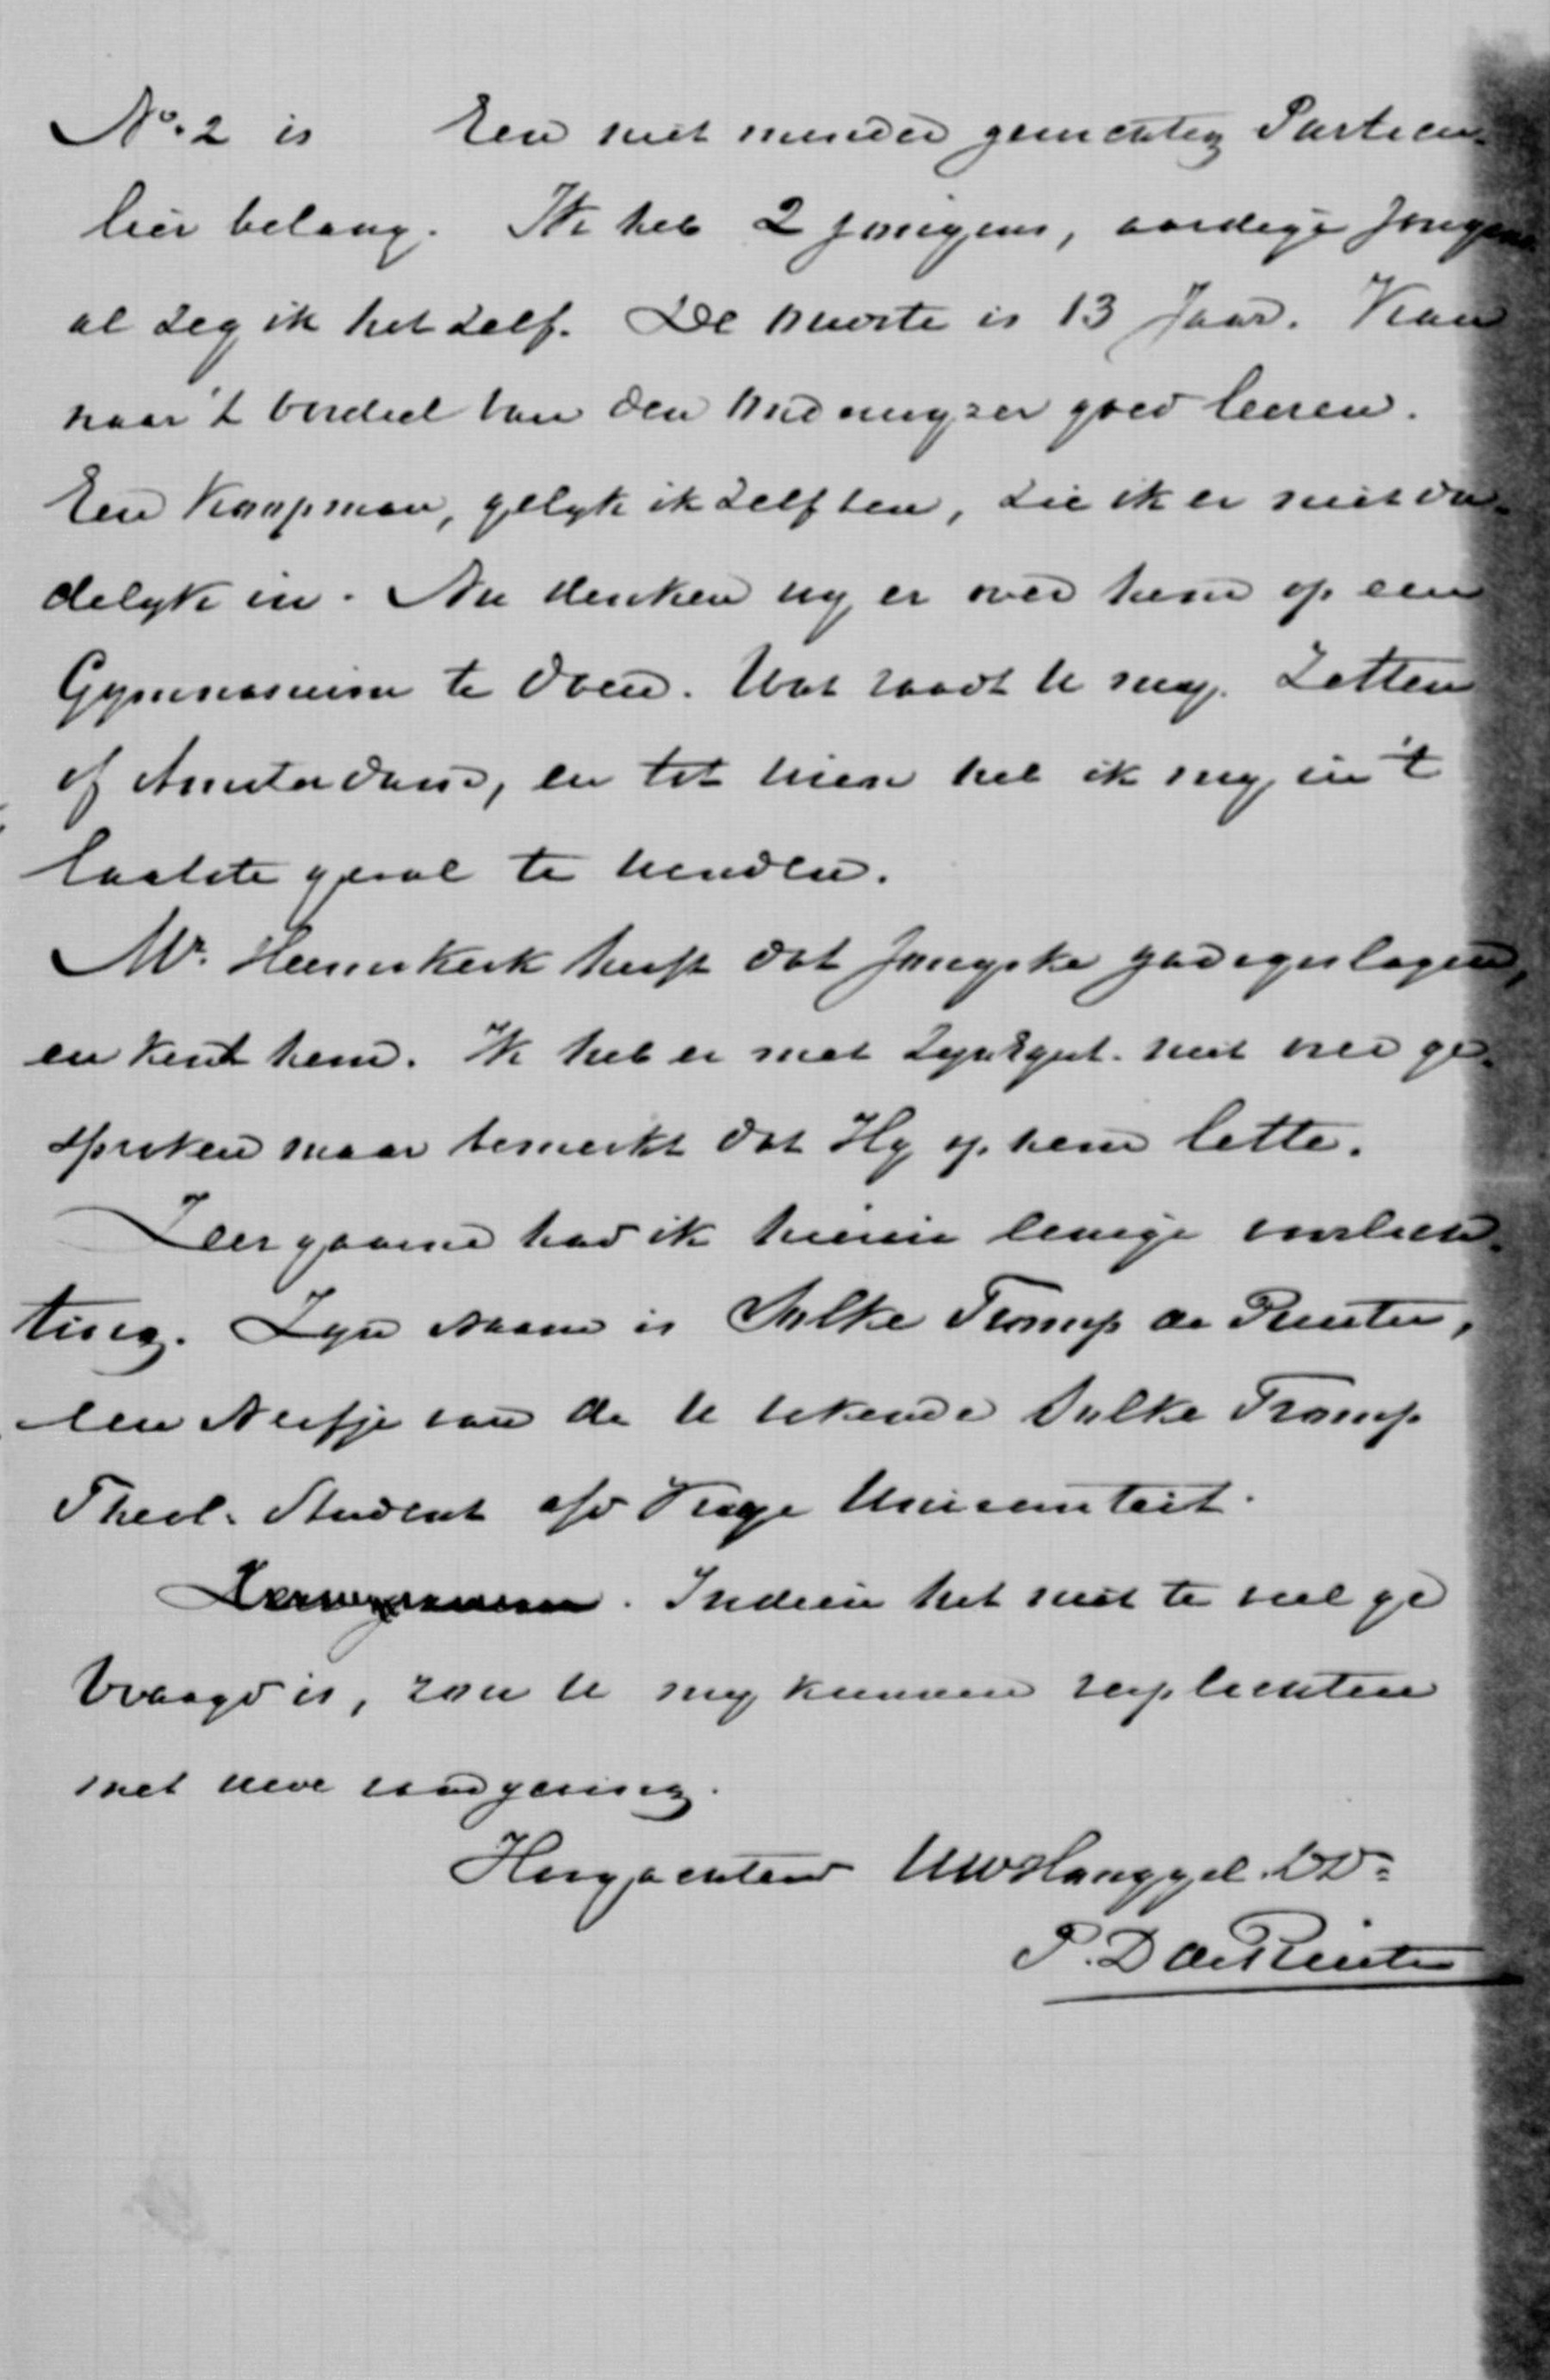 No. 2 is Een niet minder gewichtig Particu-
lier belang. Ik heb 2 jongens, aardige jongens
al zeg ik het zelf. De oudste is 13 Jaar. Kan
naar 't oordeel van den onderwyzer goed leeren.
Een Koopman, gelyk ik zelf ben, zie ik er niet da-
delyk in. Nu denken wy er over hem op een
Gymnasium te doen. Wat raadt U my. Zetten
of Amsterdam, en tot wien heb ik my in 't
laatste geval te wenden.
Mr. Heemskerk heeft dat jongske gadegeslagen,
en kent hem. Ik heb er met ZynEgel. niet over ge-
sproken maar bemerkt dat Hy op hem lette.
Zeer gaarne had ik hierin eenige voorlich-
ting. Zyn Naam is Sulke Tromp de Ruiter,
een Neefje van de U bekende Sulke Tromp
Theol. Student a/d Vrye Universiteit.
Indien het niet te veel ge
vraagd is, zou U my kunnen verplichten
met uwe raadgeving.
Hoogachtend UwHooggel. DD:
P. D de Ruiter